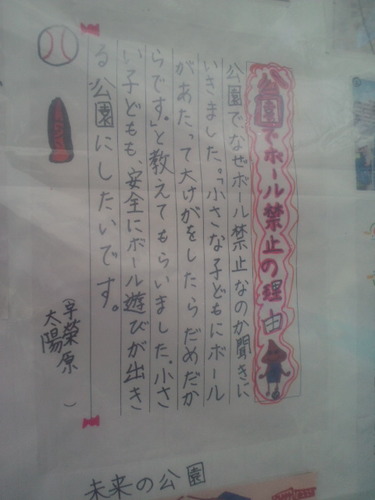 公園でボール禁止の理由
公園でなぜボール禁止なのか聞きに
いきました。「小さな子どもにボール
があたって大けがをしたらだめだか
らです。」と教えてもらいました。小さ
い子どもも、安全にボール遊びが出き
る公園にしたいです。
早榮原
太陽
未来の公園